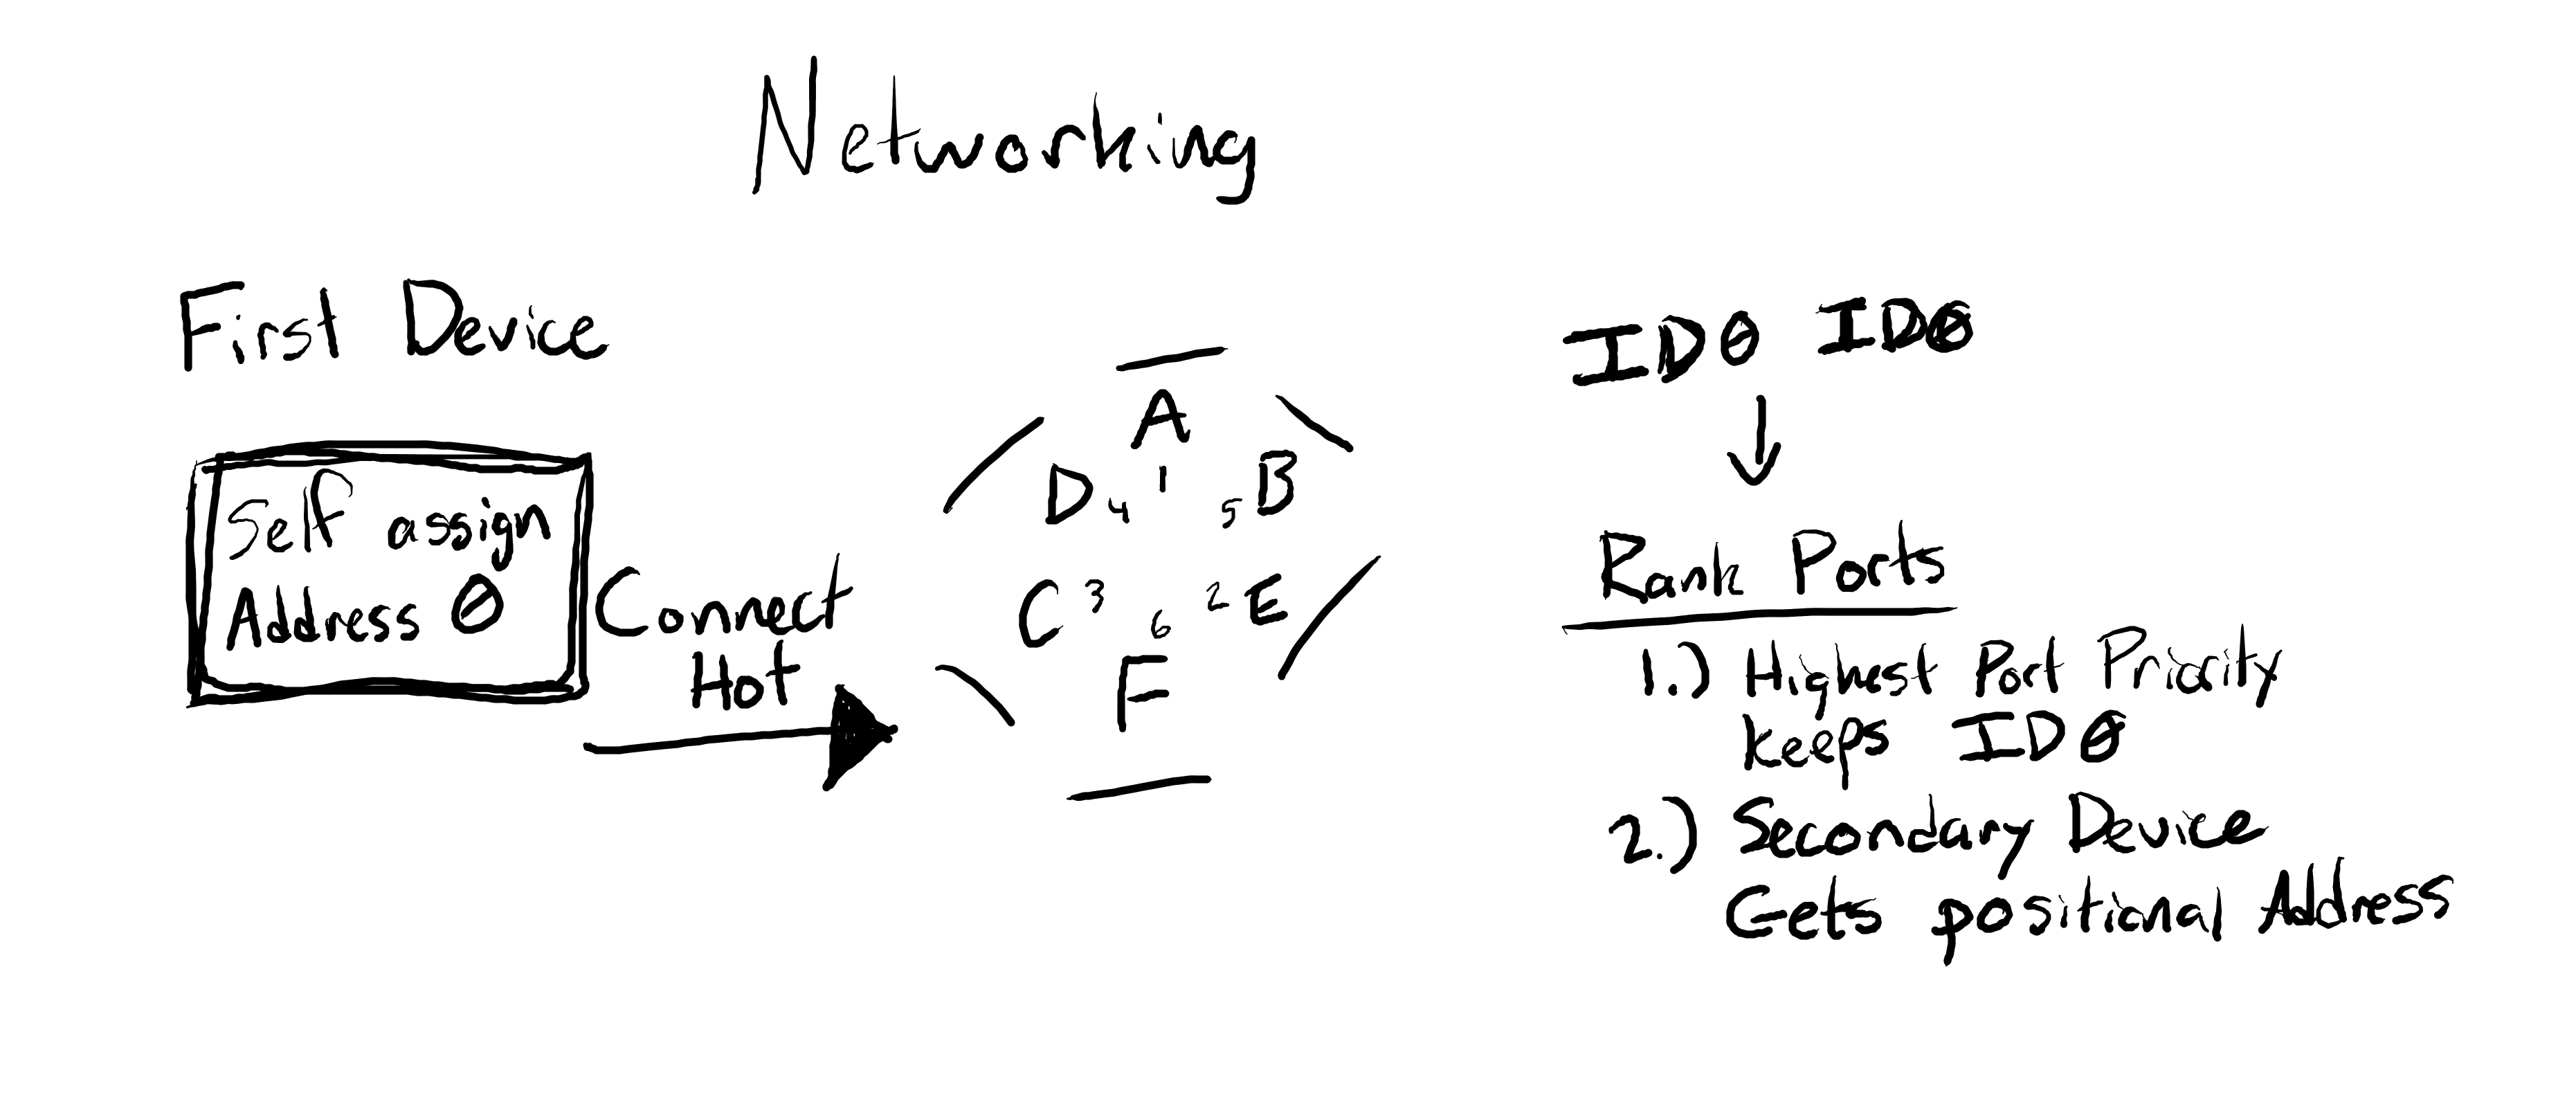 Networking
First Device
Self assign
Address 0
Connect
Hot
A
D 4 1 5 B
C 3 6 2 E
F
ID0 ID0
Rank Ports
1.) Highest Port Priority
keeps ID0
2.) Secondary Device
Gets positional Address